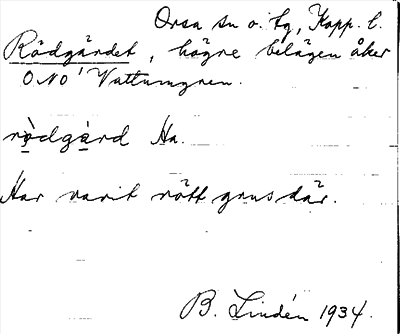 Orsa sn o. tg, Kopp. l.
Rödgärdet, högre belägen åker
ONO Vattumyren.
rò̱dgà̱rd Ha.
Har varit rött grus där.
B. Lindén 1934.